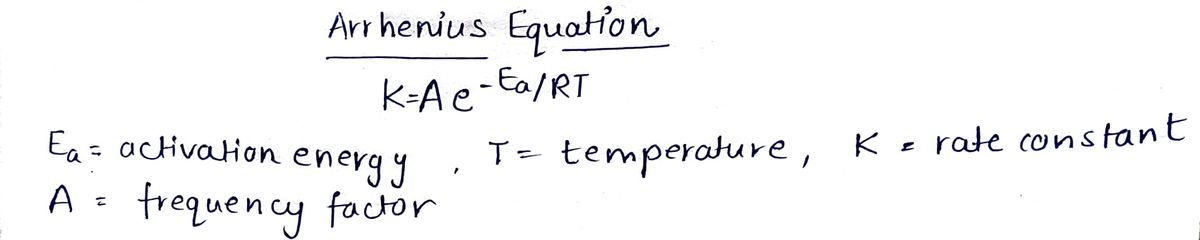 Arrhenius Equation
K=Ae-Ea/RT
Ea= activation energy , T= temperature, K = rate constant
A = frequency factor